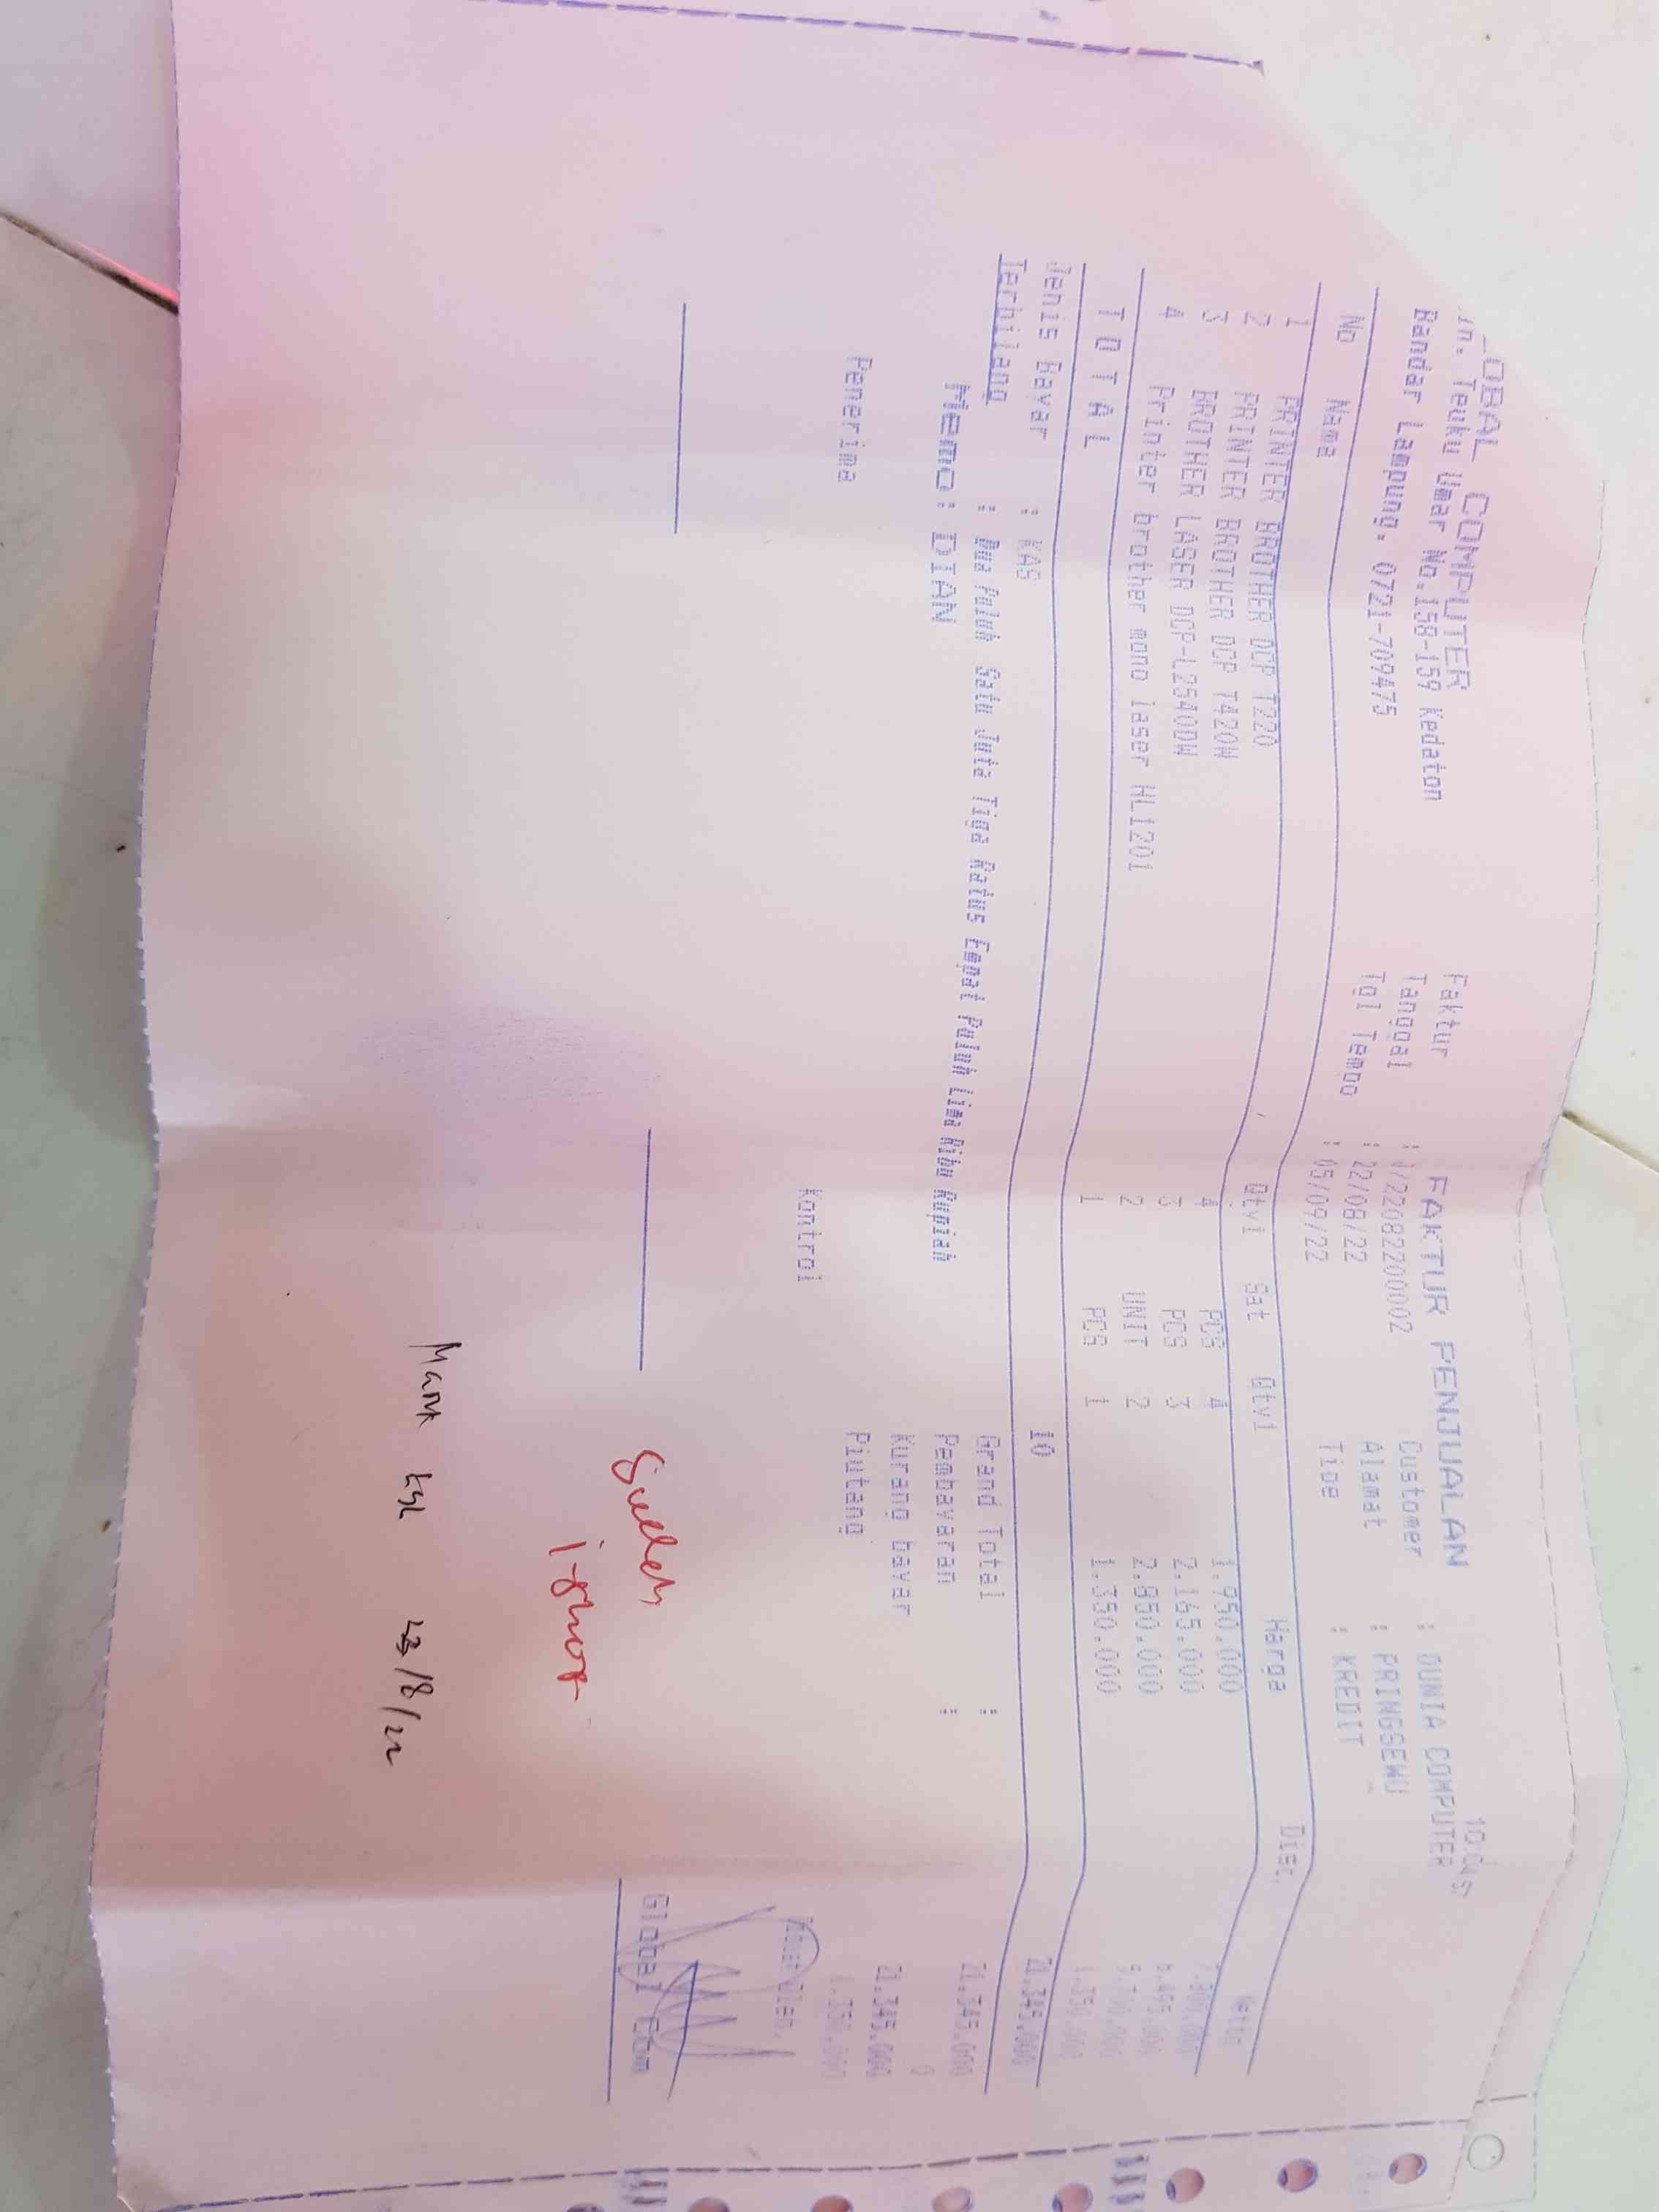 OBAL COMPUTER
FAKTUR PENJUALAN
ln. Teuku Umar No.158-159 Kedaton
Bandar Lampung. 0721-709475
Faktur : 1/22082200002
Tanggal : 22/08/22
Tgl Tempo : 05/09/22
Customer : DUNIA COMPUTER
Alamat : PRINGSEWU
Tipe : KREDIT
No Nama Qty1 Sat Qty1 Harga Disc. Netto
1 PRINTER BROTHER DCP T220 4 PCS 4 1.950.000 7.800.000
2 PRINTER BROTHER DCP T420W 3 PCS 3 2.165.000 6.495.000
3 BROTHER LASER DCP-L2540DW 2 UNIT 2 2.850.000 5.700.000
4 Printer brother mono laser HL1201 1 PCS 1 1.350.000 1.350.000
T O T A L 10 21.345.000
Jenis Bayar : KAS
Terbilang : Dua Puluh Satu Juta Tiga Ratus Empat Puluh Lima Ribu Rupiah
Memo : DIAN
Grand Total : 21.345.000
Pembayaran : 0
Kurang bayar 21.345.000
Piutang
Penerima
Kontrol
Global Com
23/8/22